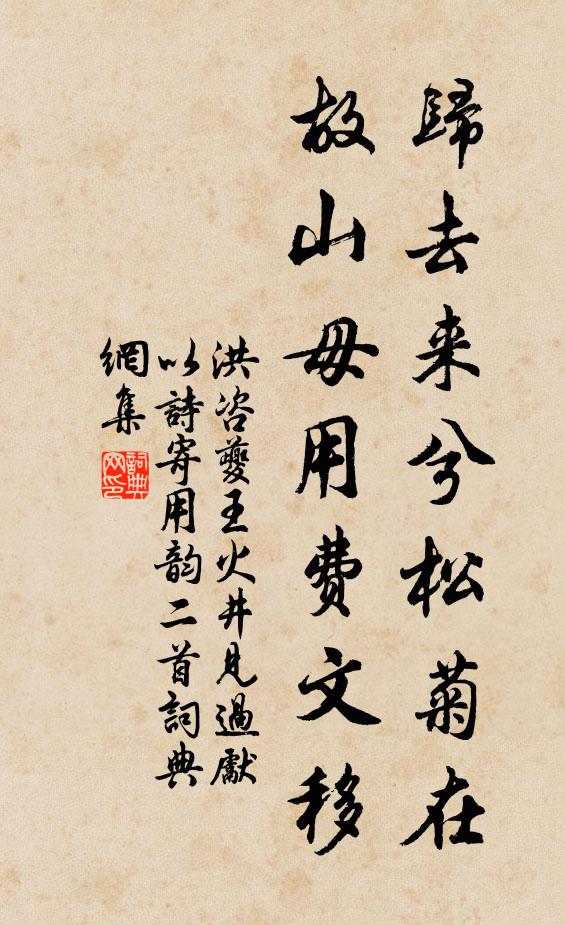 歸去来兮松菊在
故山毋用費文移
洪咨夔王火井見過獻
以詩寄用韵二首詞典
網集
詞典
网印